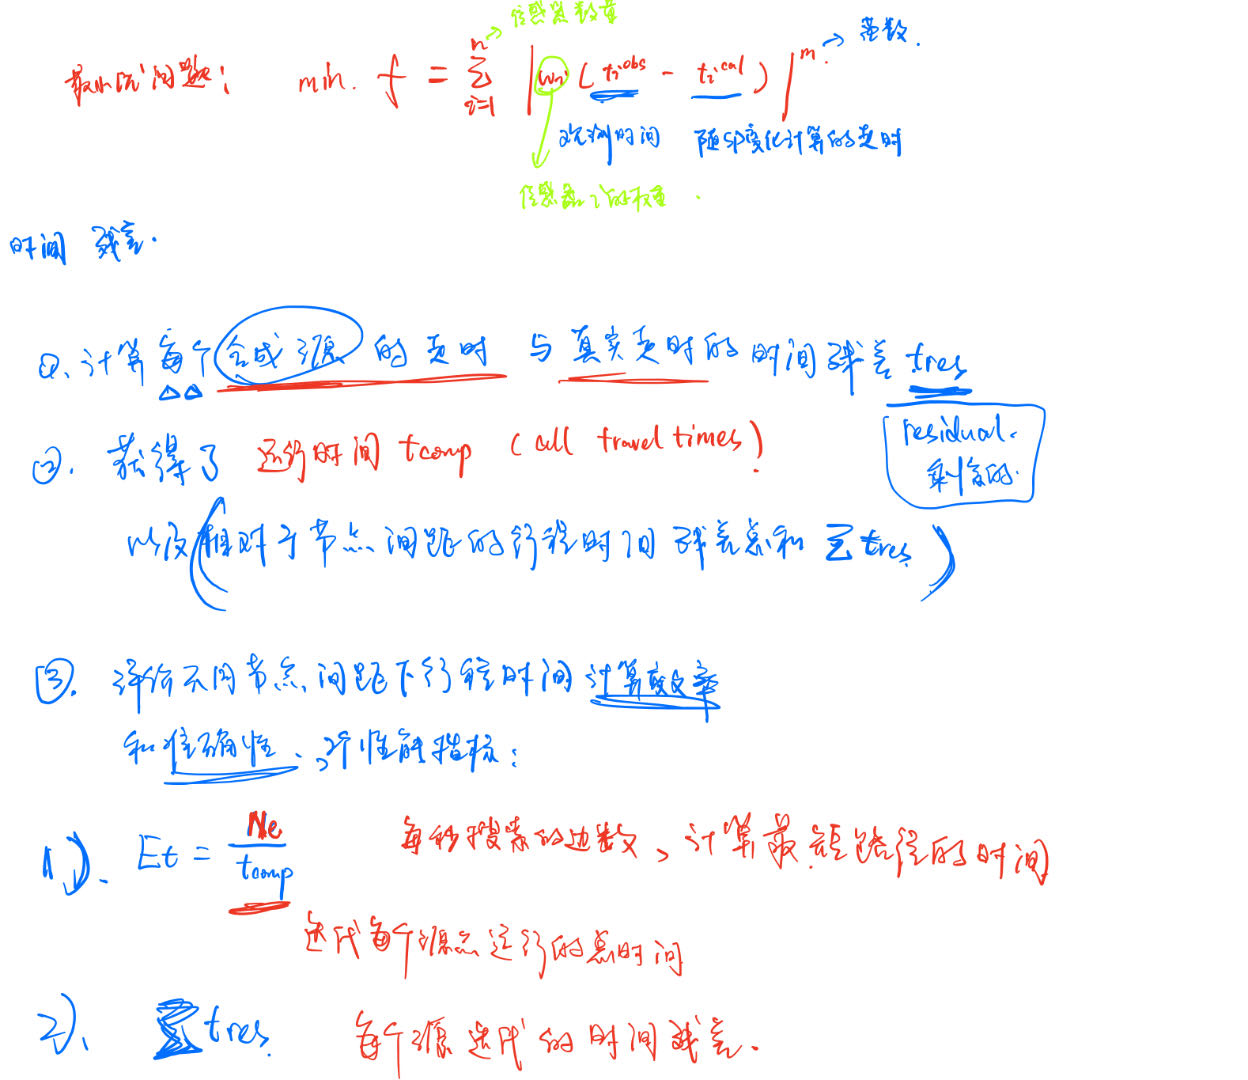 传感器数量
最小优问题： min. f = n∑i=1 | wi ( tiobs - tical ) |m → 范数.
观测时间 随SP变化计算的走时
传感器i的权重.
时间 残差.
①、计算每个合成源的走时 与真实走时的时间残差 tres
residual.
剩余的.
②. 获得了 运行时间 tcomp (all travel times)
以及(相对于节点间距的行程时间残差总和 ∑tres)
③. 评估不同节点间距下行程时间计算效率
和准确性、2个性能指标：
1)、 Et = Ne / tcomp 每秒搜索的边数、计算最短路径的时间
迭代每个源点运行的总时间
2)、 ∑tres 每个源迭代的时间残差.